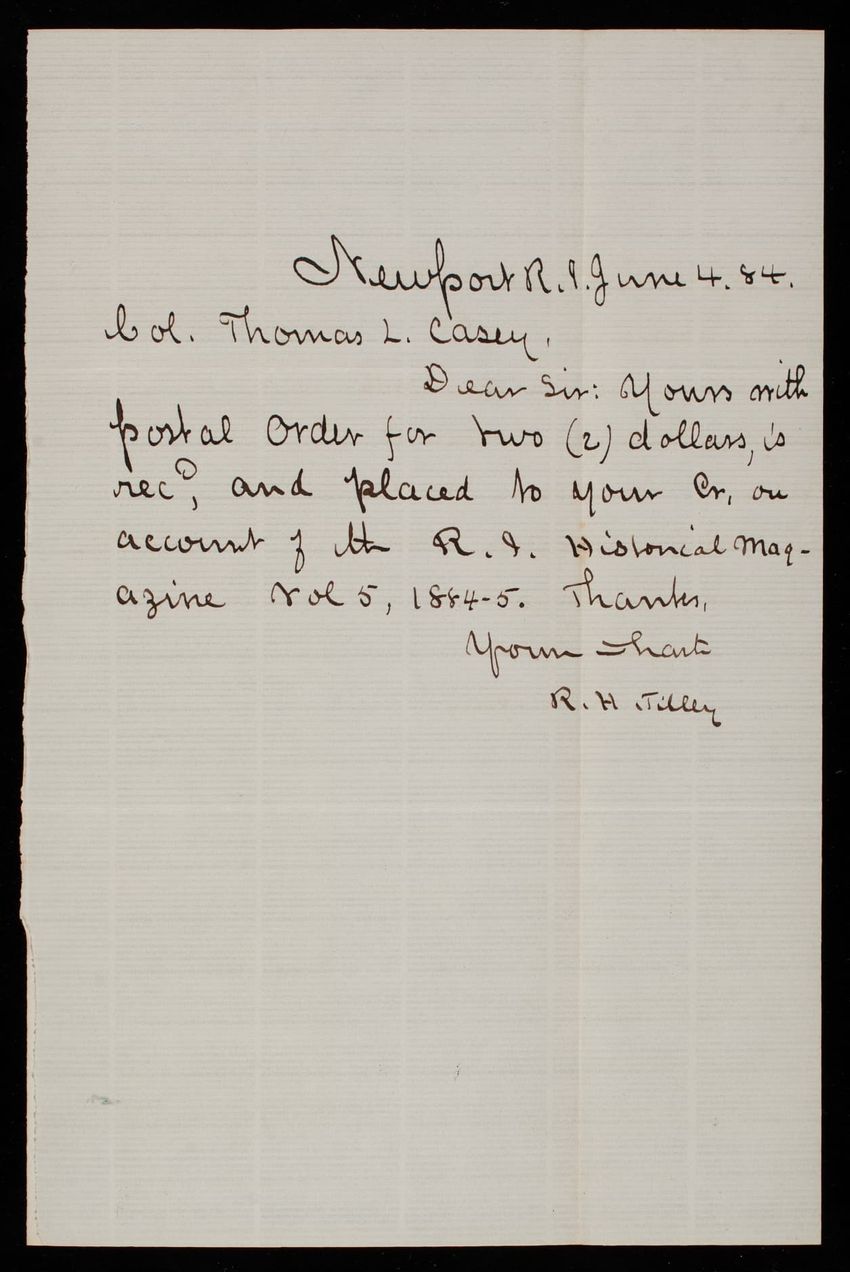 Newport R.I. June 4. 84.
Col. Thomas L. Casey,
Dear Sir: Yours with
postal Order for two (2) dollars, is
rec'd, and placed to your Cr, on
account of the R. I. Historical Mag-
azine Vol 5, 1884-5. Thanks,
Yours
R. H Tilley